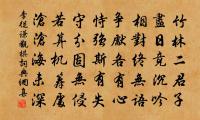 竹林二君子
盡日竟沉吟
相對終無語
爭各有心
恃強斯有失
守分固無侵
若算機籌處
滄滄海未深
李從謙觀棋詞典網